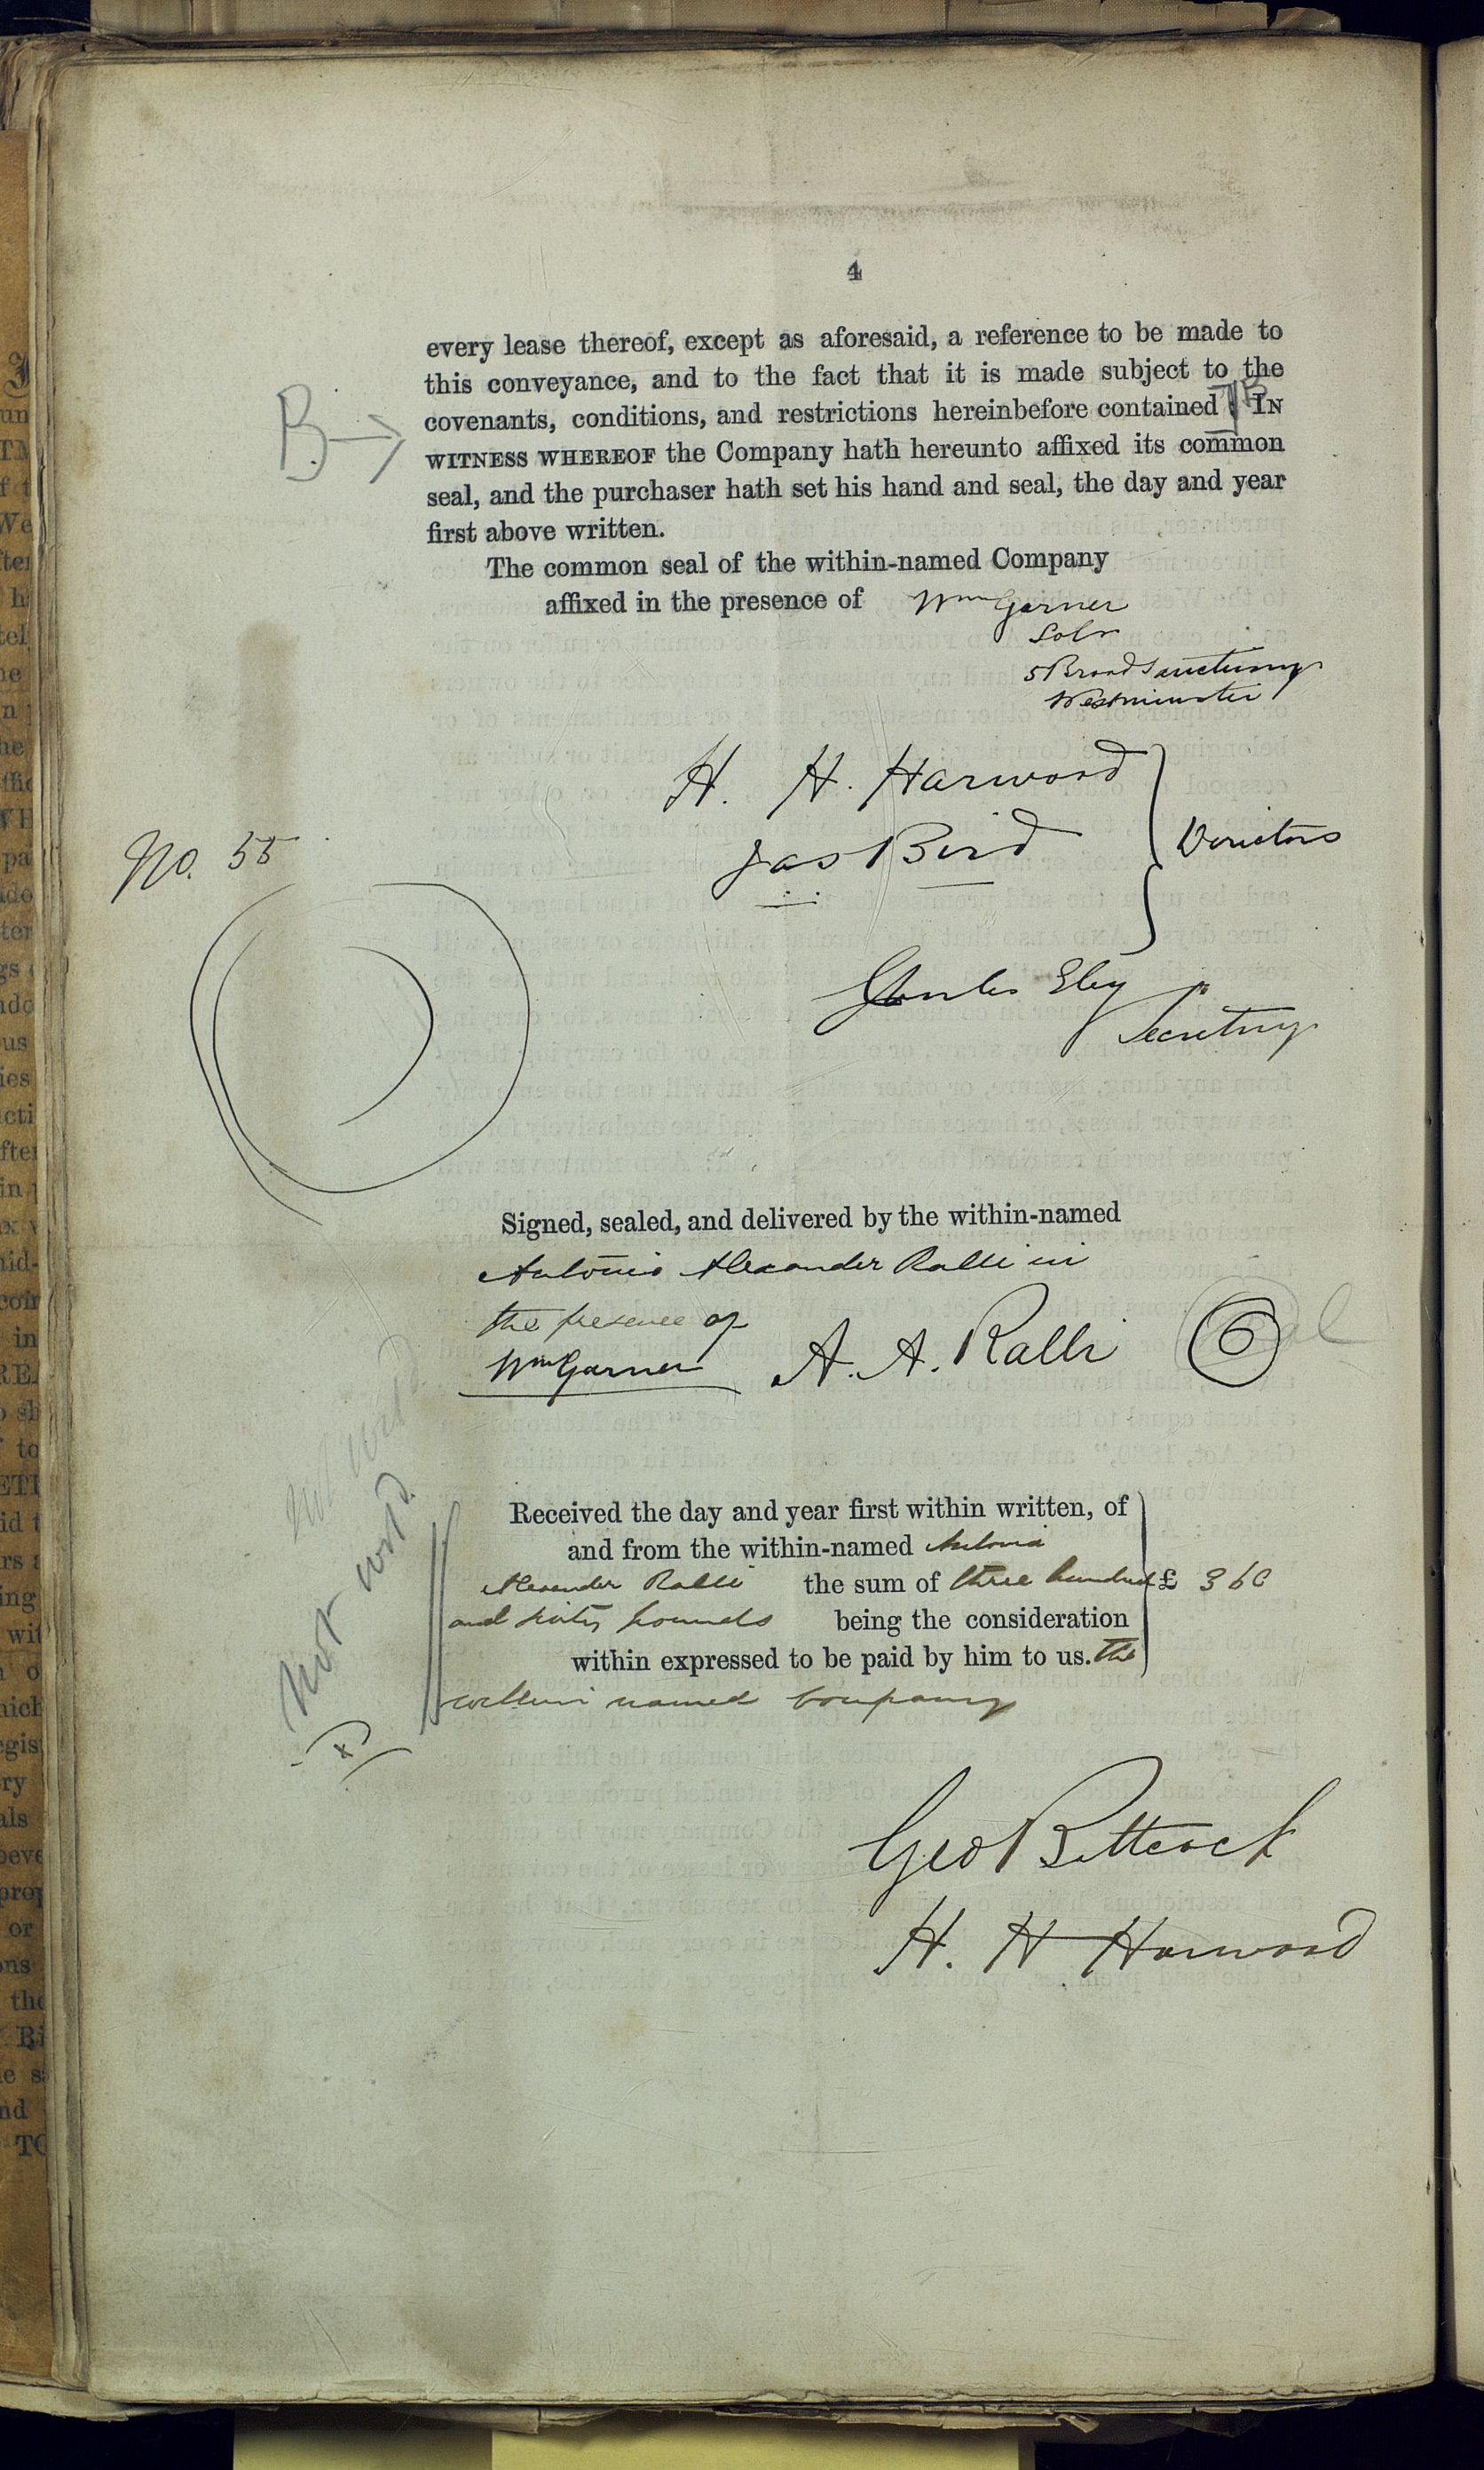 4
every lease thereof, except as aforesaid, a reference to be made to
this conveyance, and to the fact that it is made subject to the
covenants, conditions, and restrictions hereinbefore contained. IN
B
WITNESS WHEREOF the Company hath hereunto affixed its common
seal, and the purchaser hath set his hand and seal, the day and year
first above written.
The common seal of the within-named Company
affixed in the presence of Wm Garner
Solr
5 Broad Sanctuary
Westminster
H. H. Harwood
Jas Bird
Directors
No. 55
Charles Eley
Secretary
Signed, sealed, and delivered by the within-named
Antonio Alexander Ralli in
the presence of
Wm Garner A. A. Ralli
Not
Received the day and year first within written, of
and from the within-named Antonio
Alexander Ralli the sum of three hundred £ 360
and sixty pounds being the consideration
within expressed to be paid by him to us. the
within named Company
Geo
H. H Harwood